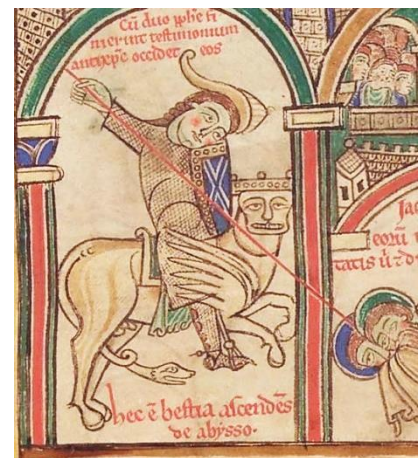 Cū duo ꝓphe fi
nierint testimonium
antixp̄c occidet eos
Jac
eorū
tatis
hec ē bestia ascendēs
de abysso.